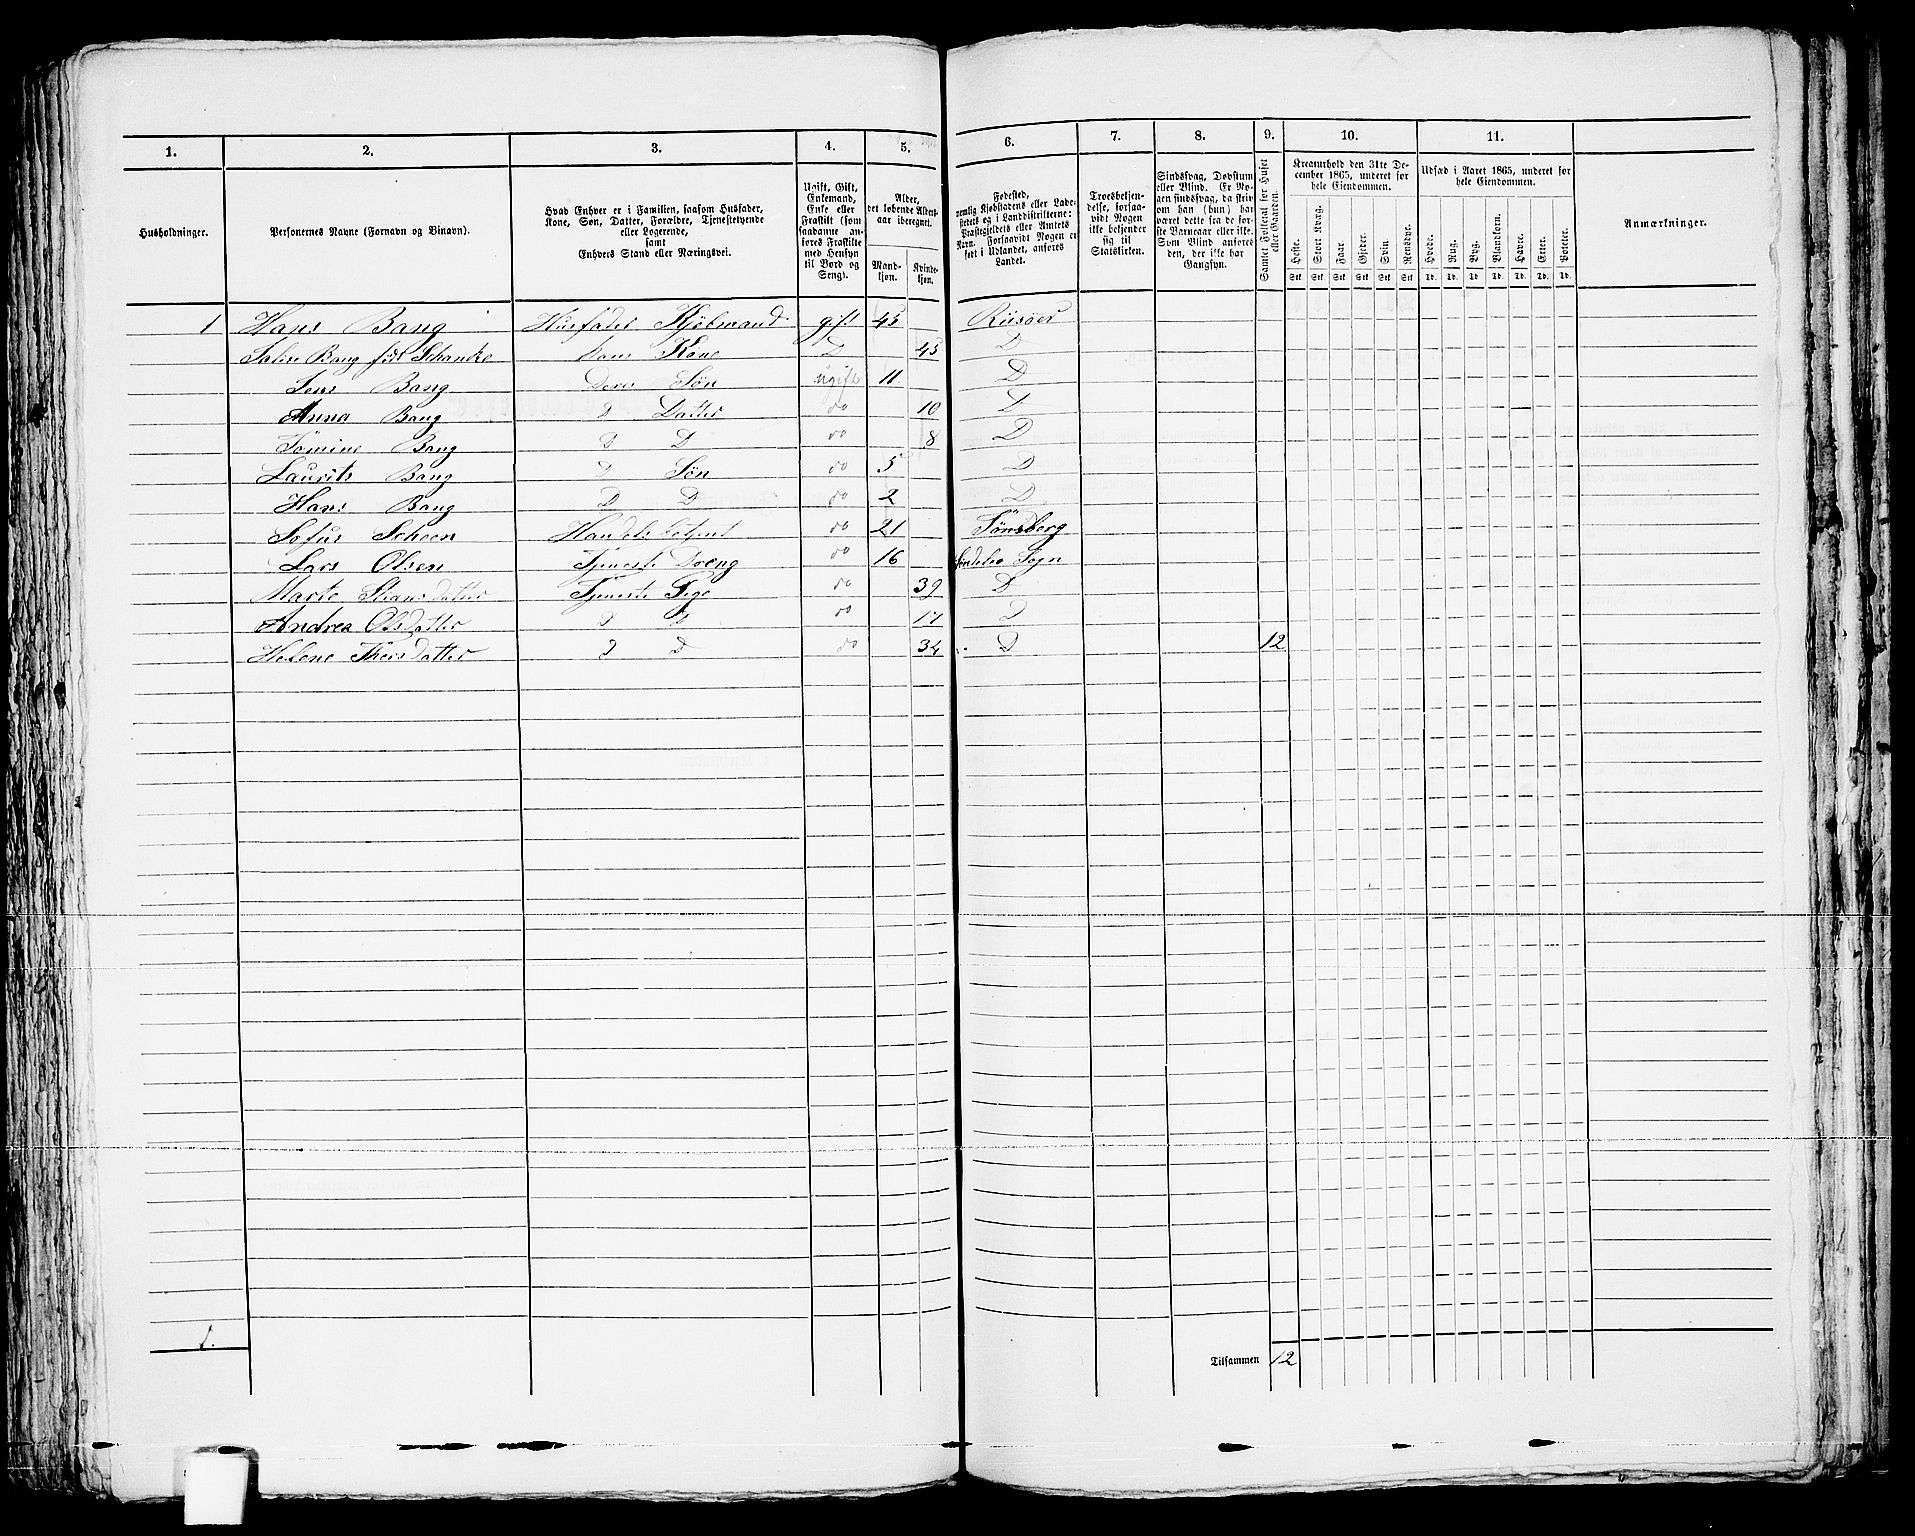 1. 2. 3. 4. 5. 6. 7. 8. 9. 10. 11.
Husholdninger.
Personernes Navne (Fornavn og Binavn).
Hvad Enhver er i Familien, saasom Husfader,
Kone, Søn, Datter, Forældre, Tjenestetyende
eller Logerende,
samt
Enhvers Stand eller Næringsvei.
Ugift, Gift,
Enkemand,
Enke eller
Fraskilt (som
saadanne an-
føres Fraskilte
med Hensyn
til Bord og
Seng).
Alder,
det løbende Alders-
aar iberegnet.
Mand-
kjøn.
Kvinde-
kjøn.
Fødested,
nemlig Kjøbstadens eller Lade-
stedets og i Landdistrikterne:
Præstegjeldets eller Amtets
Navn. Forsaavidt Nogen er
født i Udlandet, anføres
Landet.
Troesbekjen-
delse, forsaa-
vidt Nogen
ikke bekjender
sig til
Statskirken.
Sindssvag, Døvstum
eller Blind. Er No-
gen sindssvag, da skriv
om han (hun) har
været dette fra de for-
ste Barneaar eller ikke.
Som Blind anføres
den, der ikke har
Gangsyn.
Samlet Folketal for Huset
eller Gaarden.
Kreaturhold den 31te De-
cember 1865, underet for
hele Eiendommen.
Heste. Stort Kvæg. Faar. Gjeder. Svin. Rensdyr.
Stk. Stk. Stk. Stk. Stk. Stk.
Udsæd i Aaret 1865, underet for
hele Eiendommen.
Hvede. Rug. Byg. Blandkorn. Havre. Erter. Poteter.
Td. Td. Td. Td. Td. Td. Td.
Anmærkninger.
1 Hans Bang Husfader Kjøbmand gift 45 Riisöer
Bang født Schanke hans Kone D 45 D
Jens Bang Deres Søn ugift 11 D
Anna Bang D Datter do 10 D
Bang D D do 8 D
Laurits Bang D Søn do 5 D
Hans Bang D D do 2 D
Sofus Scheen do 21 Tønsberg
Lars Olsen Tjeneste Dreng do 16 Sogn
Marte Tjeneste Pige do 39 D
Andrea Olsdatter D D do 17 D
Helene D D do 34 D 12
1.
Tilsammen 12